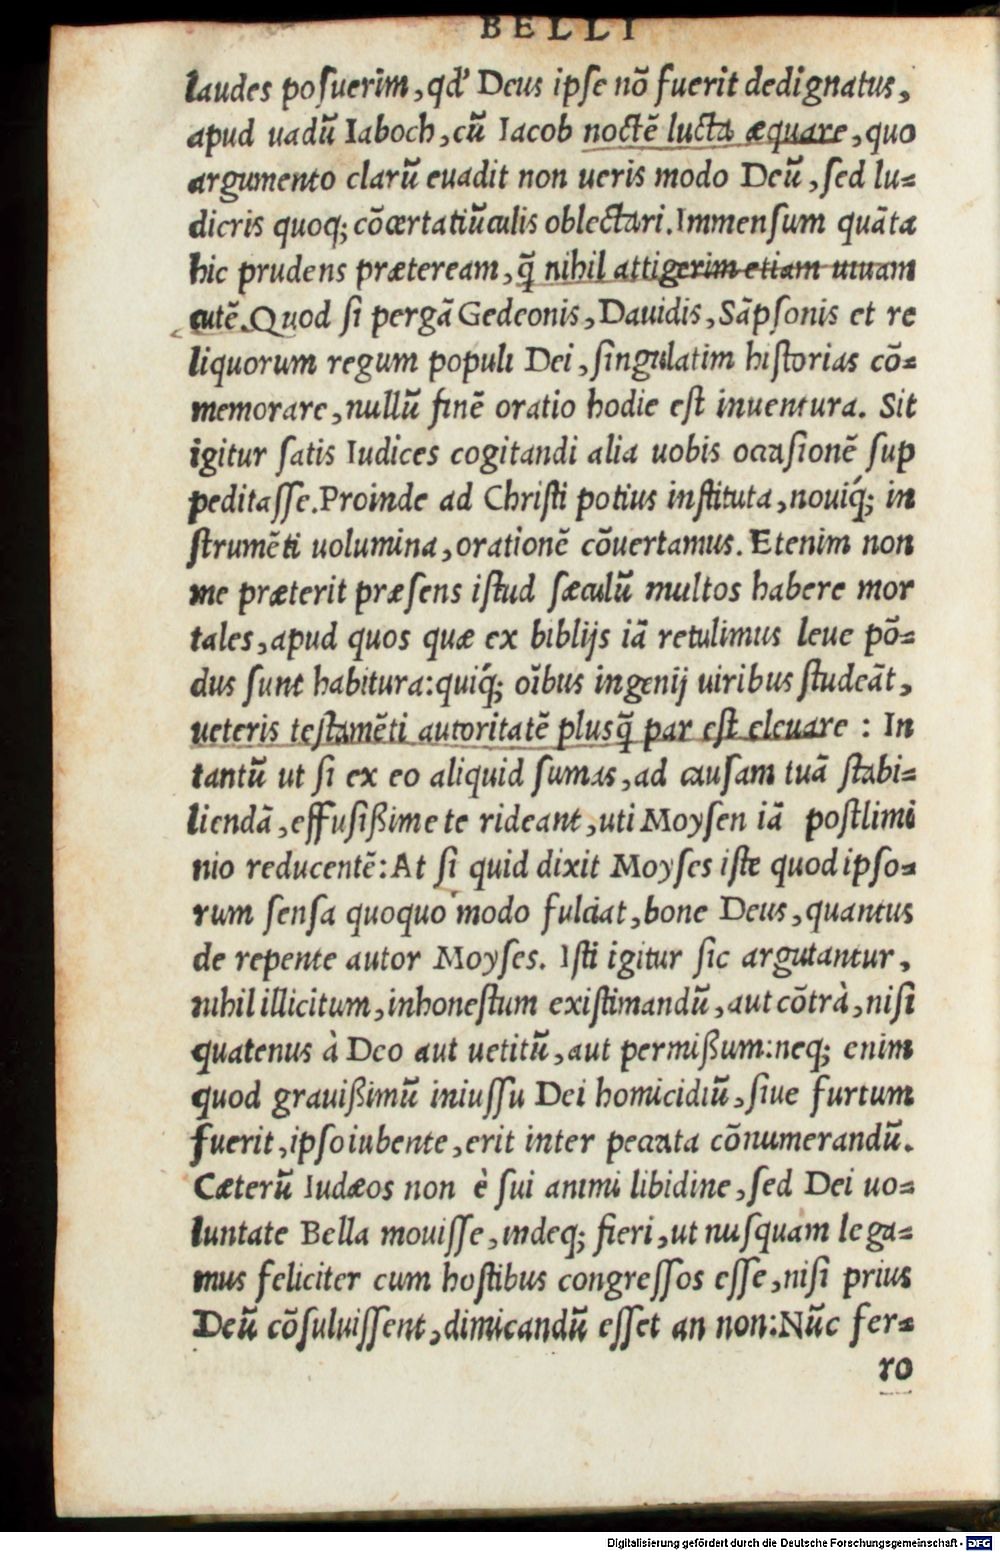 BELLI
laudes posuerim, qd' Deus ipse nõ fuerit dedignatus,
apud uadũ Iaboch, cũ Iacob noctẽ lucta æquare, quo
argumento clarũ euadit non ueris modo Deũ, sed lu=
dicris quoq; cõcertatiũculis oblectari. Immensum quãta
hic prudens præteream, q̃ nihil attigerim etiam utuam
cutẽ. Quod si pergã Gedeonis, Dauidis, Sãpsonis et re
liquorum regum populi Dei, singulatim historias cõ=
memorare, nullũ finẽ oratio hodie est inuentura. Sit
igitur satis Iudices cogitandi alia uobis occasionẽ sup
peditasse. Proinde ad Christi potius instituta, nouiq́; in
strumẽti uolumina, orationẽ cõuertamus. Etenim non
me præterit præsens istud sæculũ multos habere mor
tales, apud quos quæ ex biblijs iã retulimus leue põ=
dus sunt habitura: quiq́; oĩbus ingenij uiribus studeãt,
ueteris testamẽti autoritatẽ plusq̃ par est eleuare : In
tantũ ut si ex eo aliquid sumas, ad causam tuã stabi=
liendã, effusißime te rideant, uti Moysen iã postlimi
nio reducentẽ: At si quid dixit Moyses iste quod ipso=
rum sensa quoquo modo fulciat, bone Deus, quantus
de repente autor Moyses. Isti igitur sic argutantur,
nihil illicitum, inhonestum existimandũ, aut cõtrà, nisi
quatenus à Deo aut uetitũ, aut permißum: neq; enim
quod grauißimũ iniussu Dei homicidiũ, siue furtum
fuerit, ipso iubente, erit inter peccata cõnumerandũ.
Cæterũ Iudæos non è sui animi libidine, sed Dei uo=
luntate Bella mouisse, indeq; fieri, ut nusquam lega=
mus feliciter cum hostibus congressos esse, nisi prius
Deũ cõsuluissent, dimicandũ esset an non: Nũc fer=
ro
Digitalisierung gefördert durch die Deutsche Forschungsgemeinschaft - DFG